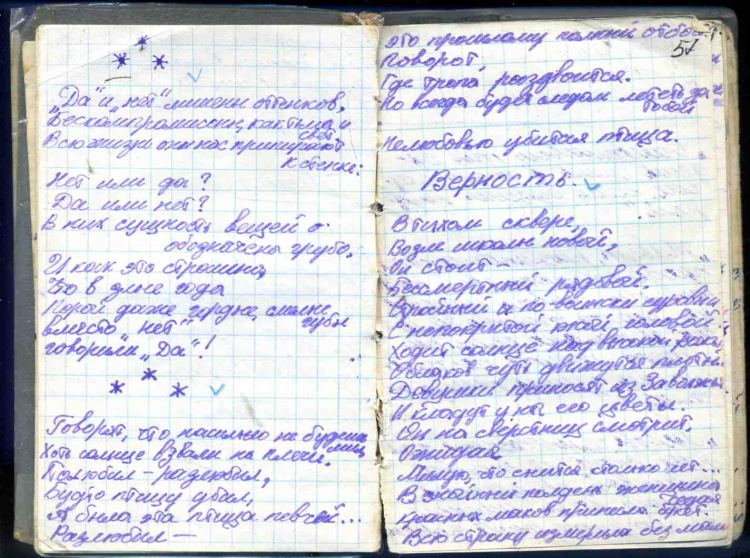 * * *
"Да" и "нет" лишены оттенков,
Бескомпромиссны, как тьма и
свет
Всю жизнь они нас припирают
к стенке:
Нет или да?
Да или нет?
В них сущность вещей
обозначена грубо,
И как это страшно,
Порой даже гордые, смелые
губы
вместо "нет"
говорили "Да"!
* * *
Говорят, что насильно не будешь
мил,
Хоть солнце взвали на плечи.
Полюбил – разлюбил,
Будто птицу убил,
А была эта птица певчей...
Разлюбил –
51
это прошлому полный отбой
Поворот,
Где тропа раздвоится.
Но всегда будет следом лететь за
тобой
Нелюбовью убитая птица.
Верность.
В тихом сквере,
Возле школы новой,
Он стоит –
Бессмертный рядовой.
Стройный и по-воински суровый
С непокрытой юной головой.
Ходит солнце над высокой
Облаков чуть движутся плоты.
Девушки приносят из Заволжья
И кладут у ног его цветы.
Он на сверстниц смотрит,
Ожидая
Милую, что снится столько лет...
В знойный полдень женщина
седая
Красных маков принесла букет.
Всю страну измерила без мала